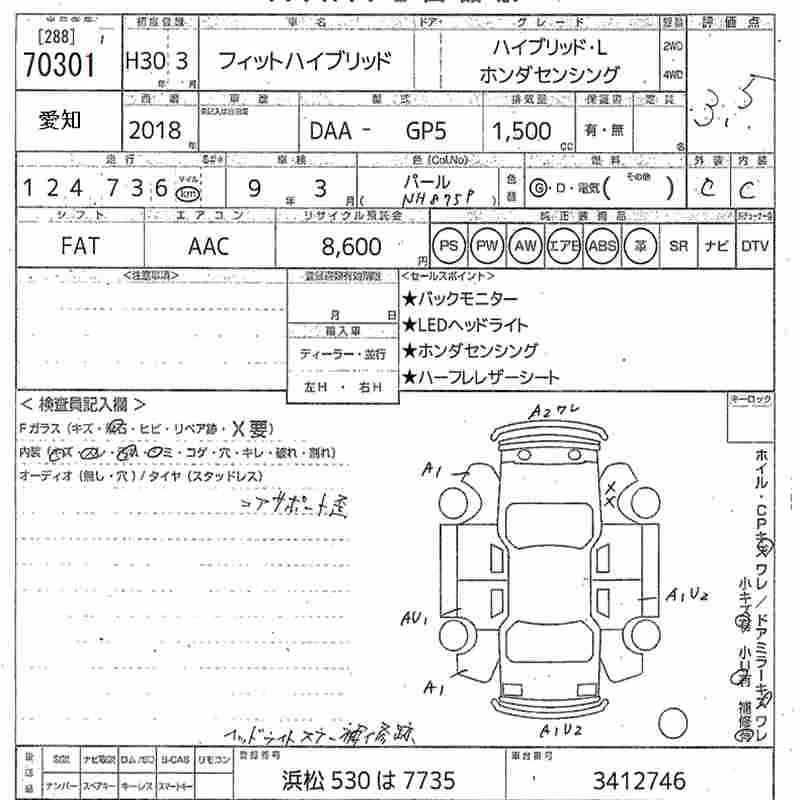 [288]
70301
初度登録
H30 3
年 月
車名
フィットハイブリッド
ドア・グレード
ハイブリッド・L
ホンダセンシング
2WD
4WD
評価点
3.5
愛知
西暦
2018
年
車歴
型式
DAA - GP5
排気量
1,500
CC
保証書
有・無
定員
名
走行
124736
マイル
km
車検
9 年 3 月
色(Col.No)
パール
( NH875P )
色替
燃料
G・D・電気( その他 )
外装
C
内装
C
シフト
FAT
エアコン
AAC
リサイクル預託金
8,600
円
純正装備品
PS PW AW エアB ABS 革 SR ナビ DTV
<注意事項>
月 日
輸入車
ディーラー・並行
左H ・ 右H
<セールスポイント>
★バックモニター
★LEDヘッドライト
★ホンダセンシング
★ハーフレザーシート
キーロック
< 検査員記入欄 >
Fガラス (キズ・飛石・ヒビ・リペア跡・X要)
内装 (キズ・コゲ・穴・キレ・破れ・割れ)
オーディオ (無し・穴) / タイヤ (スタッドレス)
コアサポート歪
A2ワレ
A1
X
X
AU1
A1U2
A1
A1U2
ホイル・CPキズワレ/ドアミラーキズワレ
小キズ有 小U有 補修有
ヘッドライトステー補修跡
後送品
SDC ナビ取説 ロム/SD B-CAS リモコン
ナンバー スペアキー キーレス スマートキー
登録番号
浜松 530 は 7735
車台番号
3412746